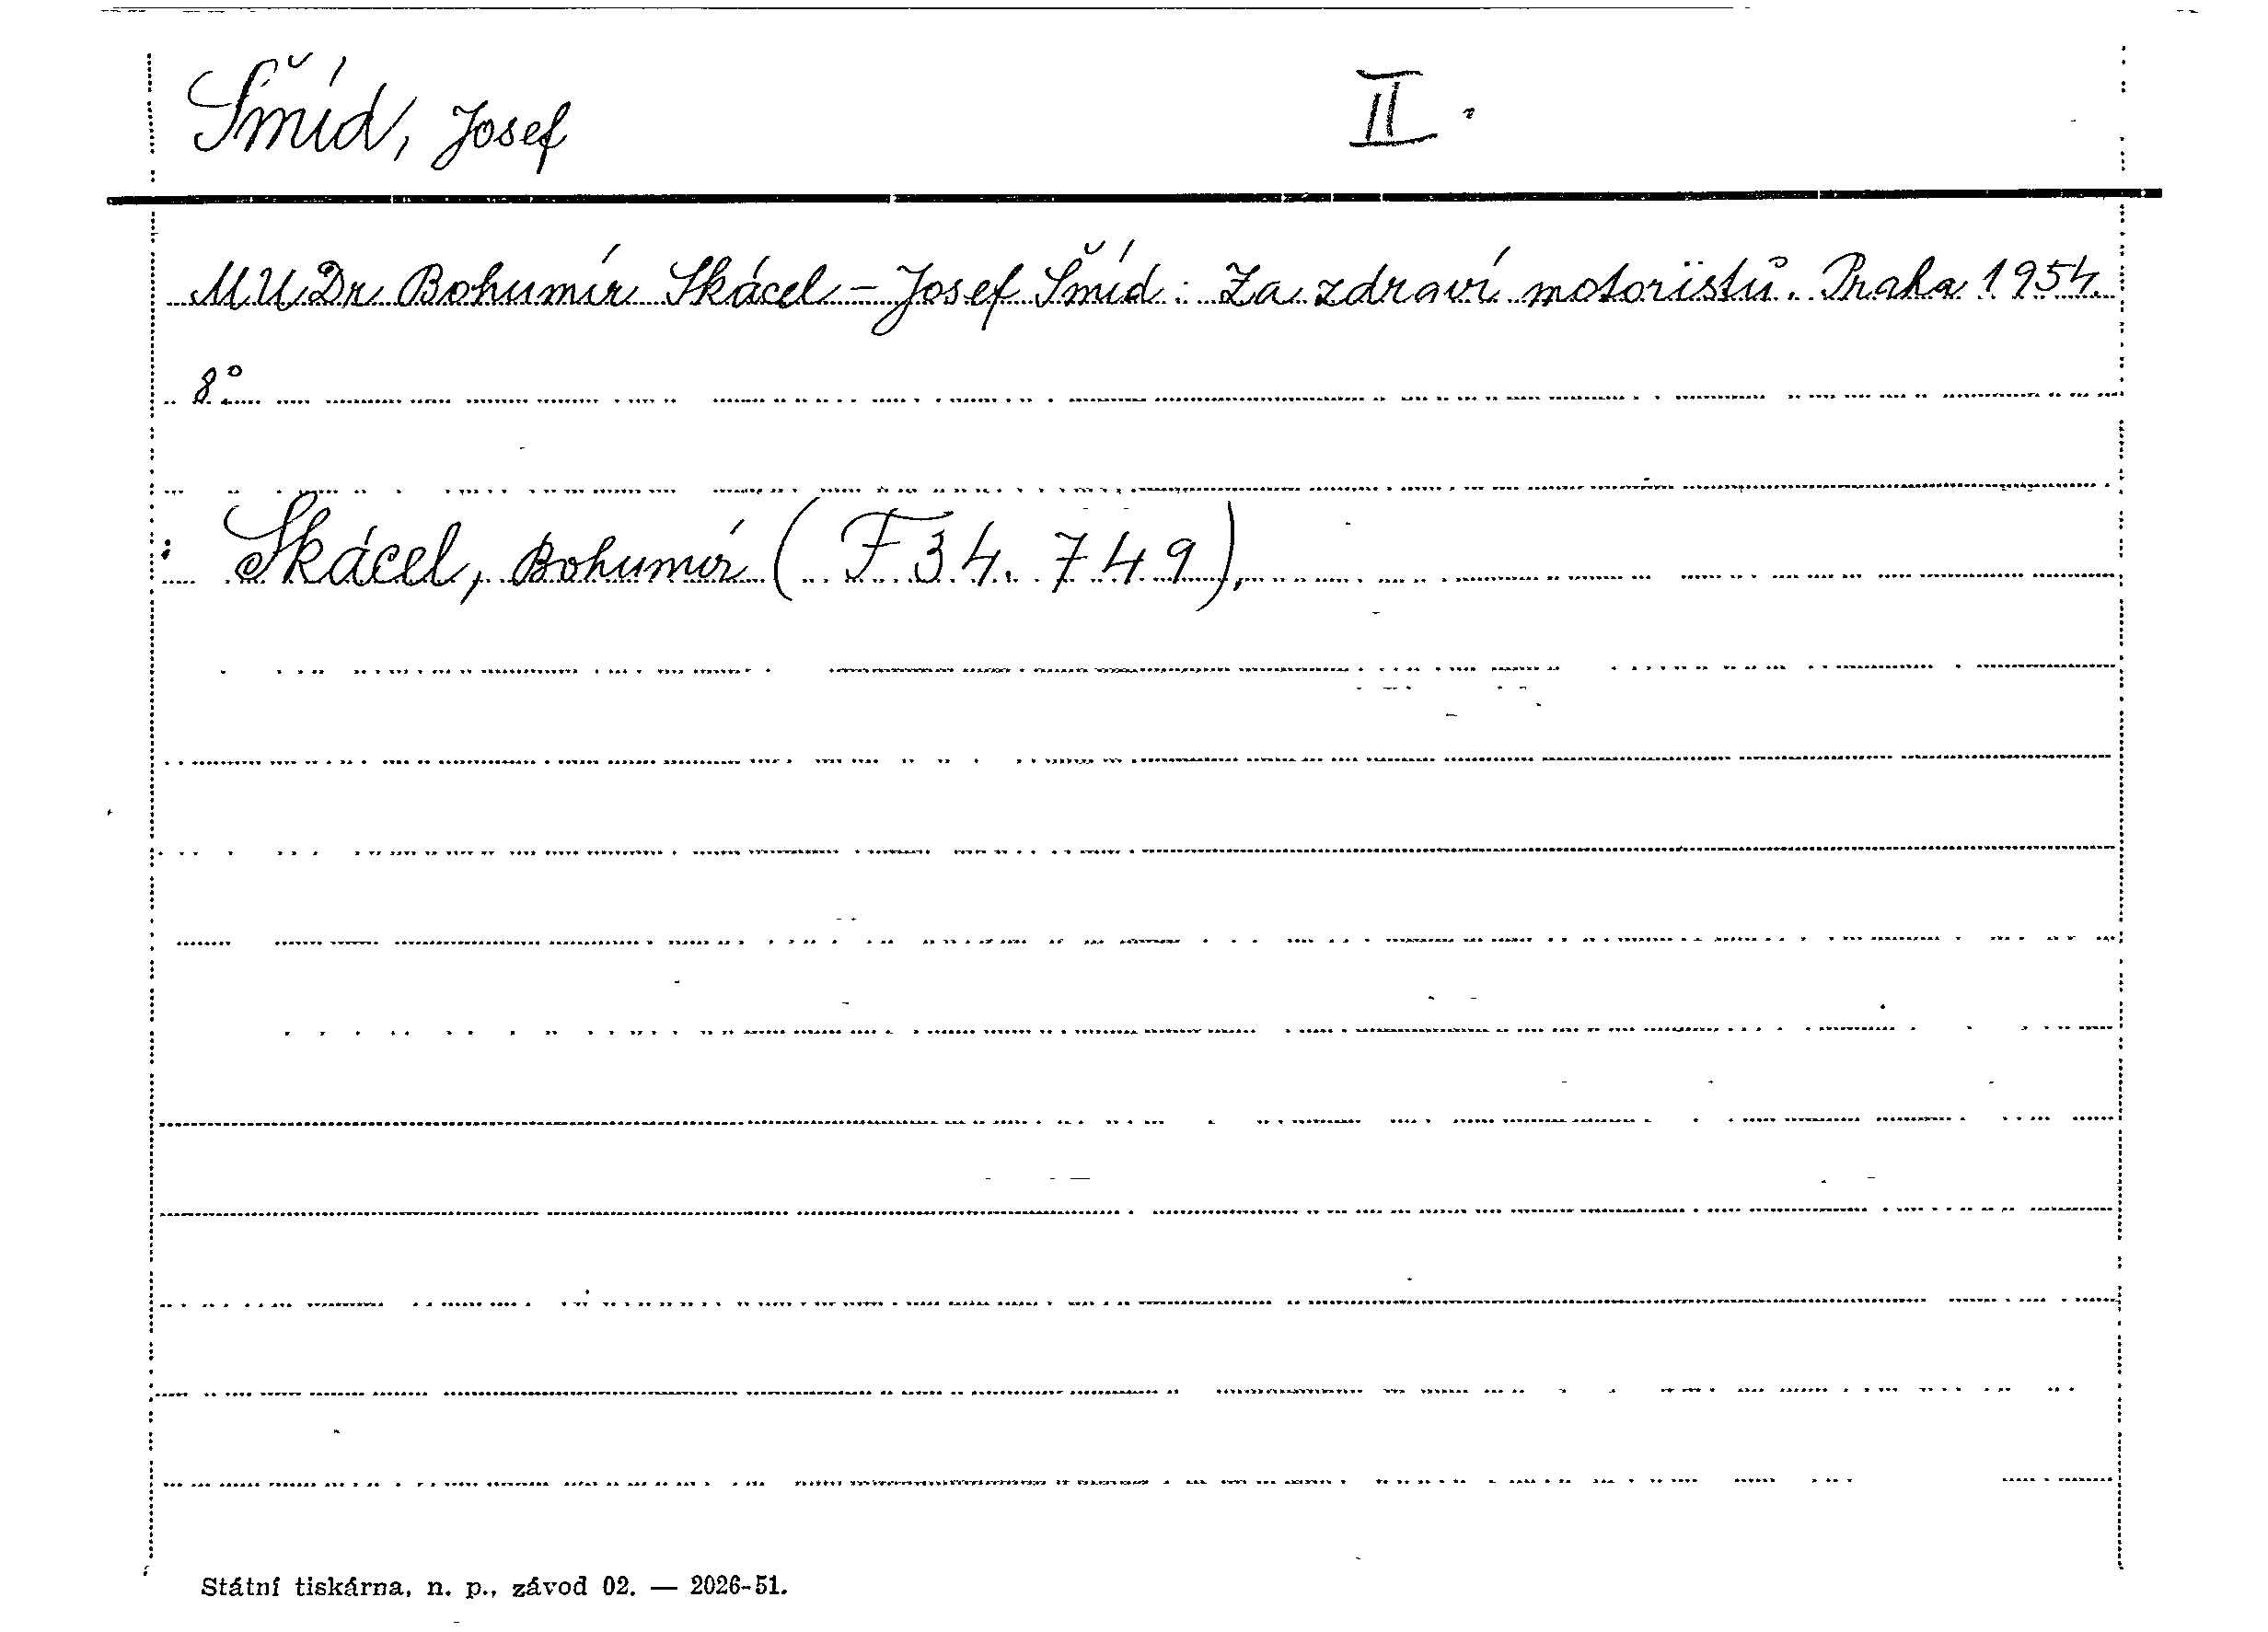 Šmíd, Josef II.
MUDr Bohumír Skácel - Josef Šmíd: Za zdraví motoristů. Praha 1954.
8°
: Skácel, Bohumír (F 34.749).
Státní tiskárna, n. p., závod 02. — 2026-51.